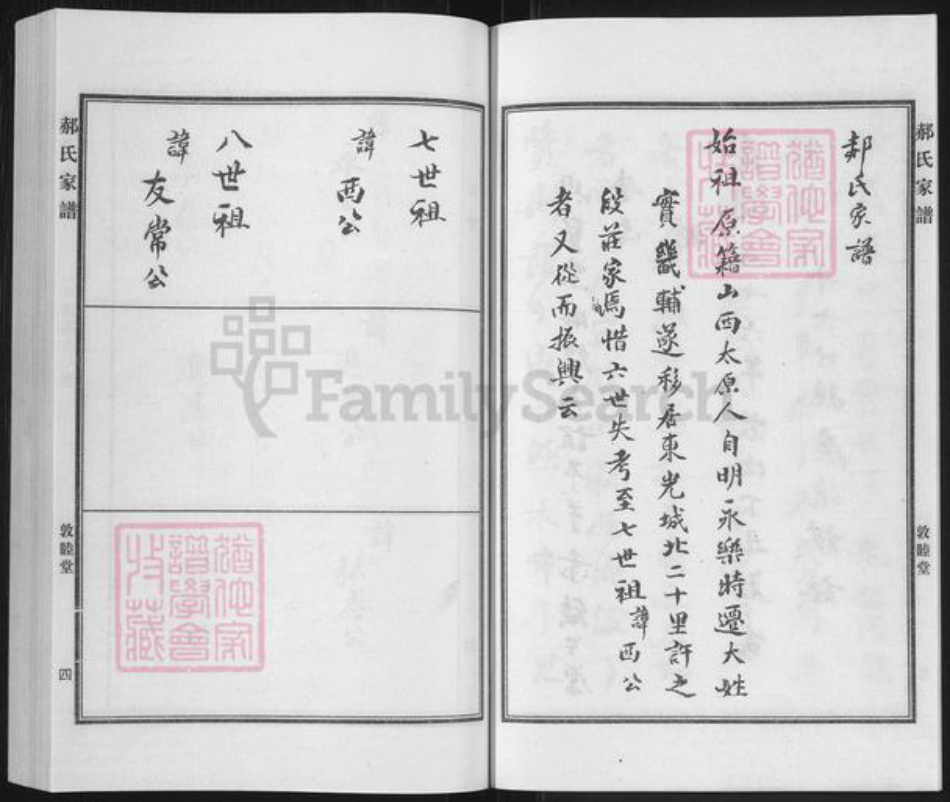 郝氏家譜
敦睦堂
郝氏家譜
始祖原籍山西太原人自明永樂時遷大姓
實畿輔遂移居東光城北二十里許之
段莊家焉惜六世失考至七世祖諱西公
者又從而振興云
七世祖
諱西公
八世祖
諱友常公
郝氏家譜
敦睦堂
四
FamilySearch